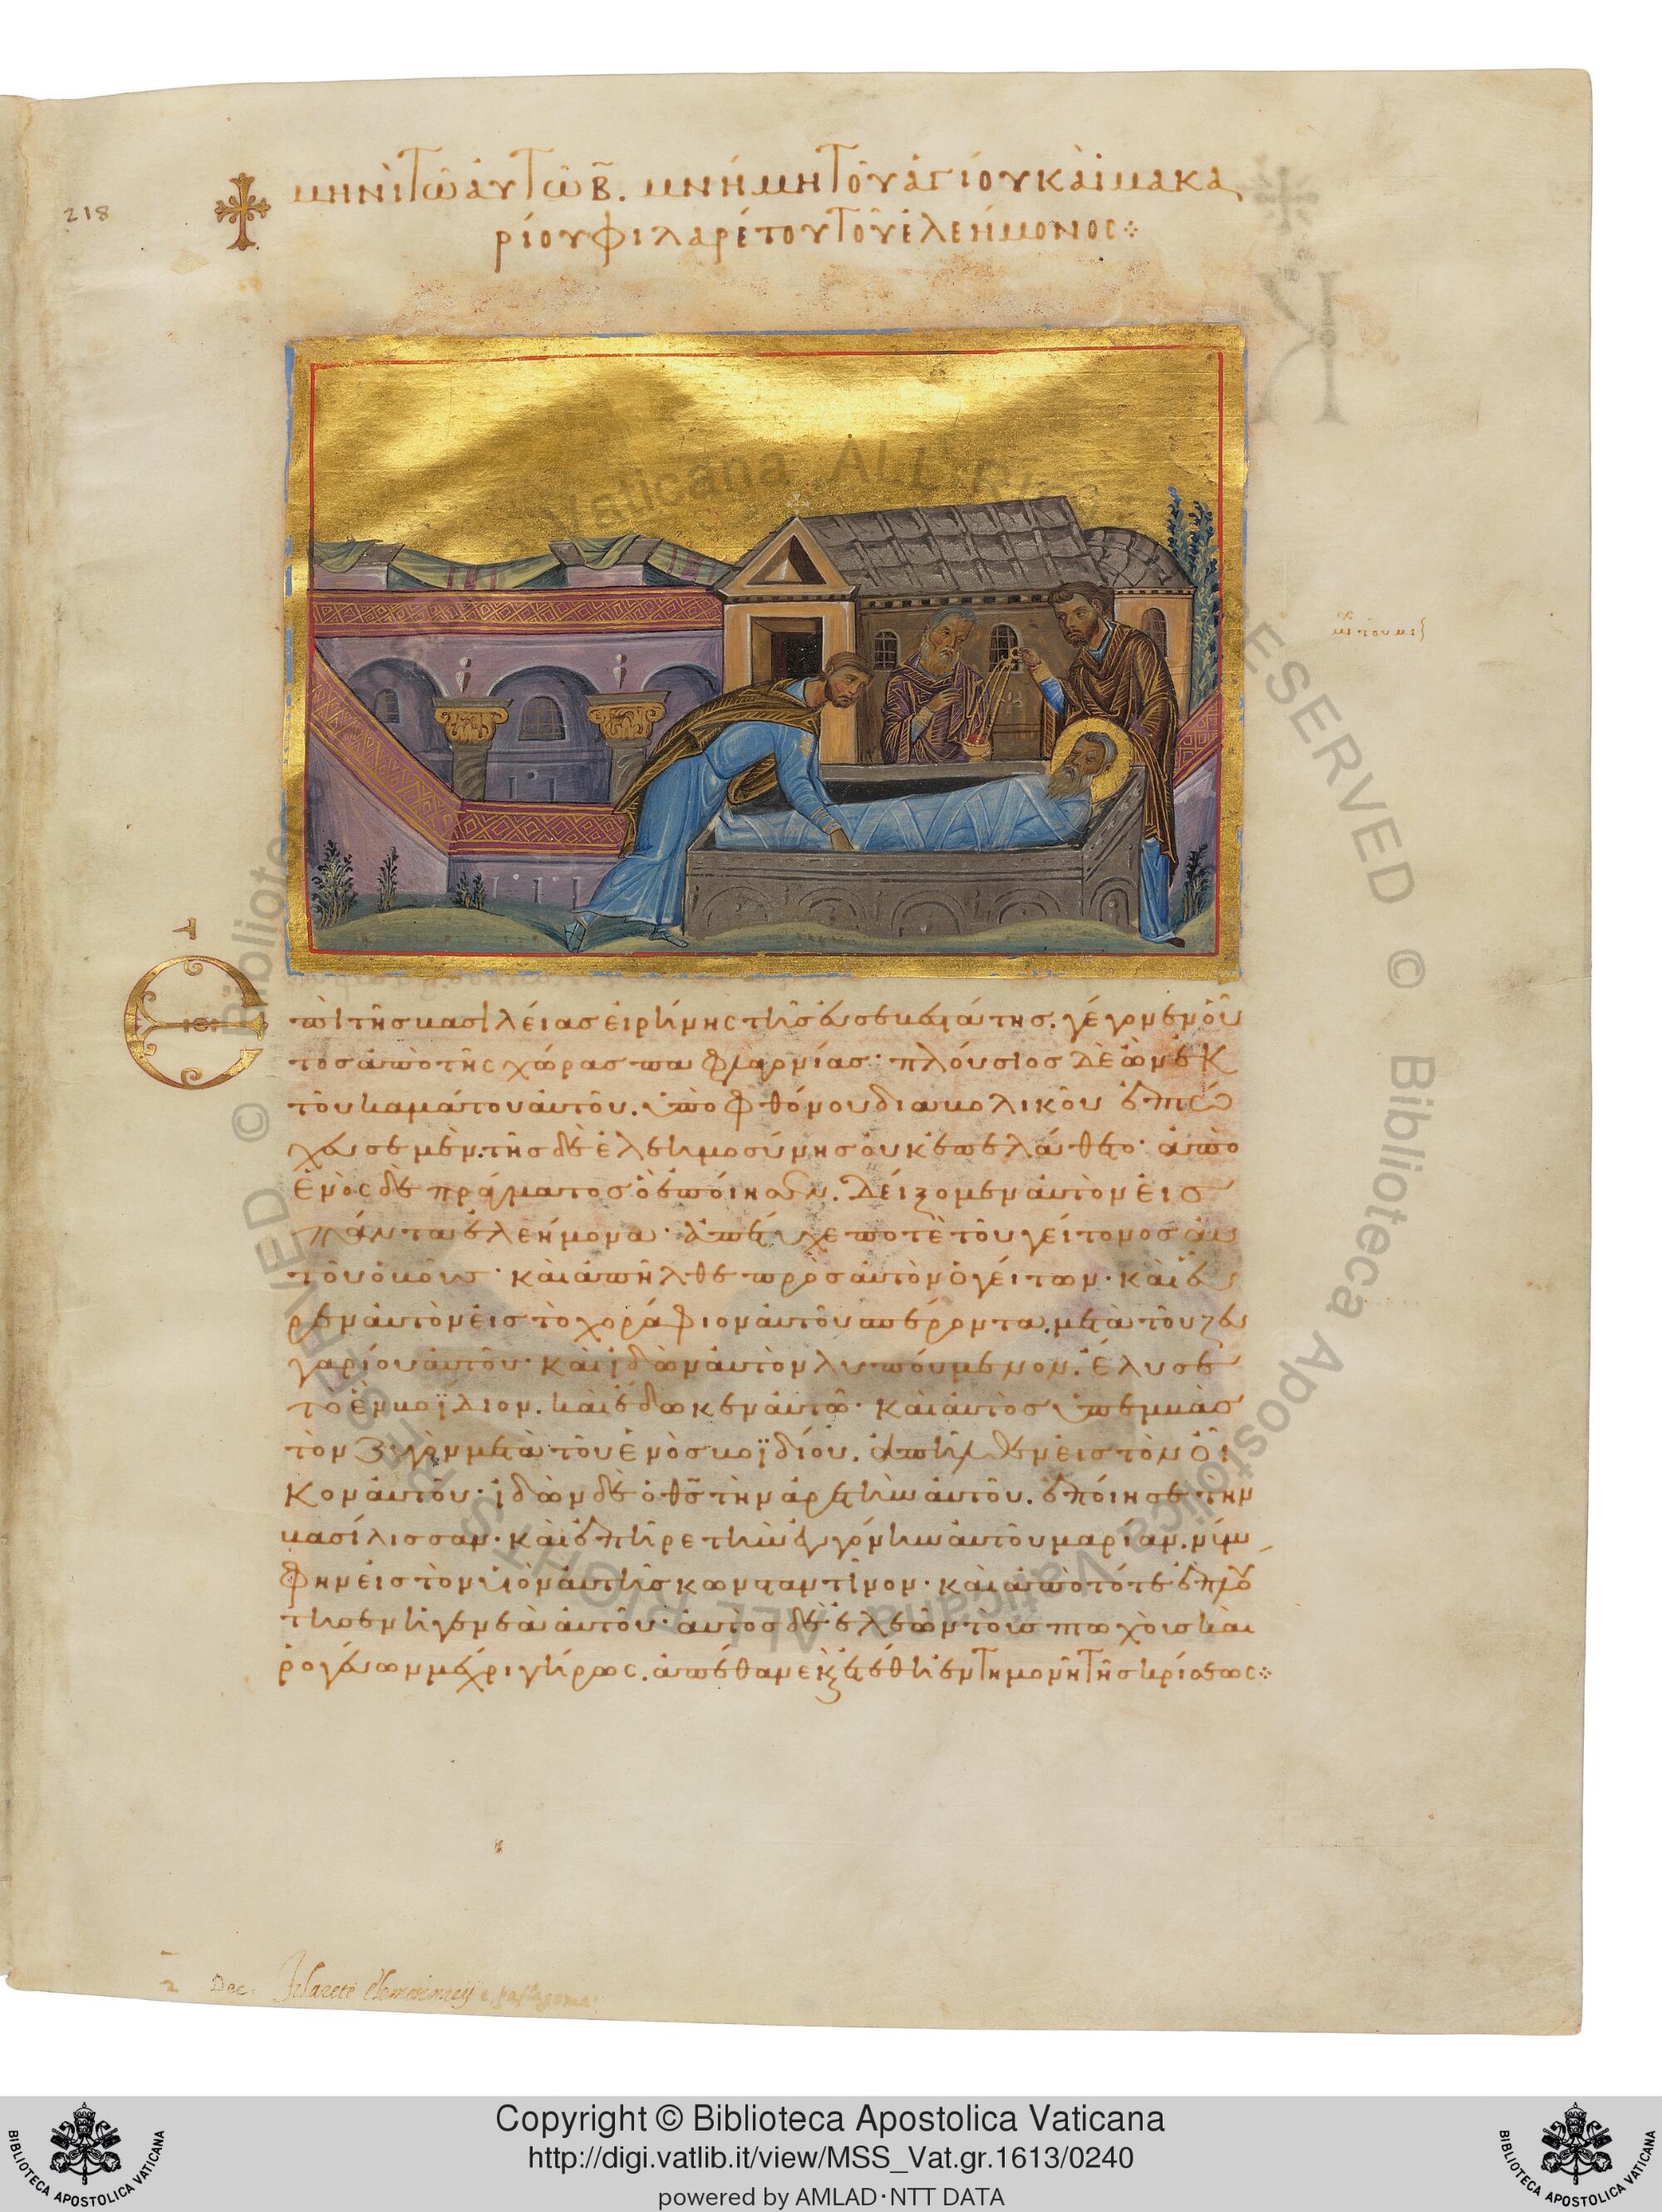 218
μηνὶ τῶ αὐτῶ β̄. μνήμη τοῦ ἁγίου καὶ μακα
ρίου φιλαρέτου τοῦ ἐλεήμονος
Ἐ
πὶ τῆς βασιλείας εἰρήνης τῆς εὐσεβεστάτης. γέγονεν οὗ
τος ἀπὸ τῆς χώρας παφλαγονίας· πλούσιος δὲ ὢν ἐκ
τοῦ καμάτου αὐτοῦ. ὑπὸ φθόνου διαβολικοῦ ἐπτώ
χευσε μέν. τῆς δὲ ἐλεημοσύνης οὐκ ἐπελάθετο· ἀπὸ
ἑνὸς δὲ πράγματος ὃ ἐποίησεν. δείξομεν αὐτὸν εἰς
πάντα ἐλεήμονα· ποτὲ τοῦ γείτονος αὐ
τοῦ ὁ βοῦς· καὶ ἀπῆλθε πρὸς αὐτὸν ὁ γείτων· καὶ εὗ
ρεν αὐτὸν εἰς τὸ χοράφιον αὐτοῦ σπέροντα. μετὰ τοῦ ζευ
γαρίου αὐτοῦ· καὶ ἰδὼν αὐτὸν λυπούμενον. ἔλυσε
τὸ ἓν βοΐδιον. καὶ ἔδωκεν αὐτῶ· καὶ αὐτὸς
τὸν ζυγὸν μετὰ τοῦ ἑνὸς βοϊδίου. ἀπῆλθεν εἰς τὸν οἶ
κον αὐτοῦ· ἰδὼν δὲ ὁ θς τὴν ἀρετὴν αὐτοῦ. ἐποίησε τὴν
βασίλισσαν· καὶ ἐπῆρε τὴν ἐγγόνην αὐτοῦ μαρίαν. νύμ
φην εἰς τὸν υἱὸν αὐτῆς κωνσταντῖνον· καὶ ἀπὸ τότε ἐπλού
τησεν ἡ γενεὰ αὐτοῦ· αὐτὸς δὲ ἐλεῶν τοῖς πτωχοῖς καὶ
ῥογεύων μέχρι γήρως. ἀπέθανε κ ἐτέθη ἐν τῆ μονῆ τῆς κρίσεως
2 Dec.
Copyright © Biblioteca Apostolica Vaticana
http://digi.vatlib.it/view/MSS_Vat.gr.1613/0240
powered by AMLAD·NTT DATA
BIBLIOTECA APOSTOLICA VATICANA
BIBLIOTECA APOSTOLICA VATICANA